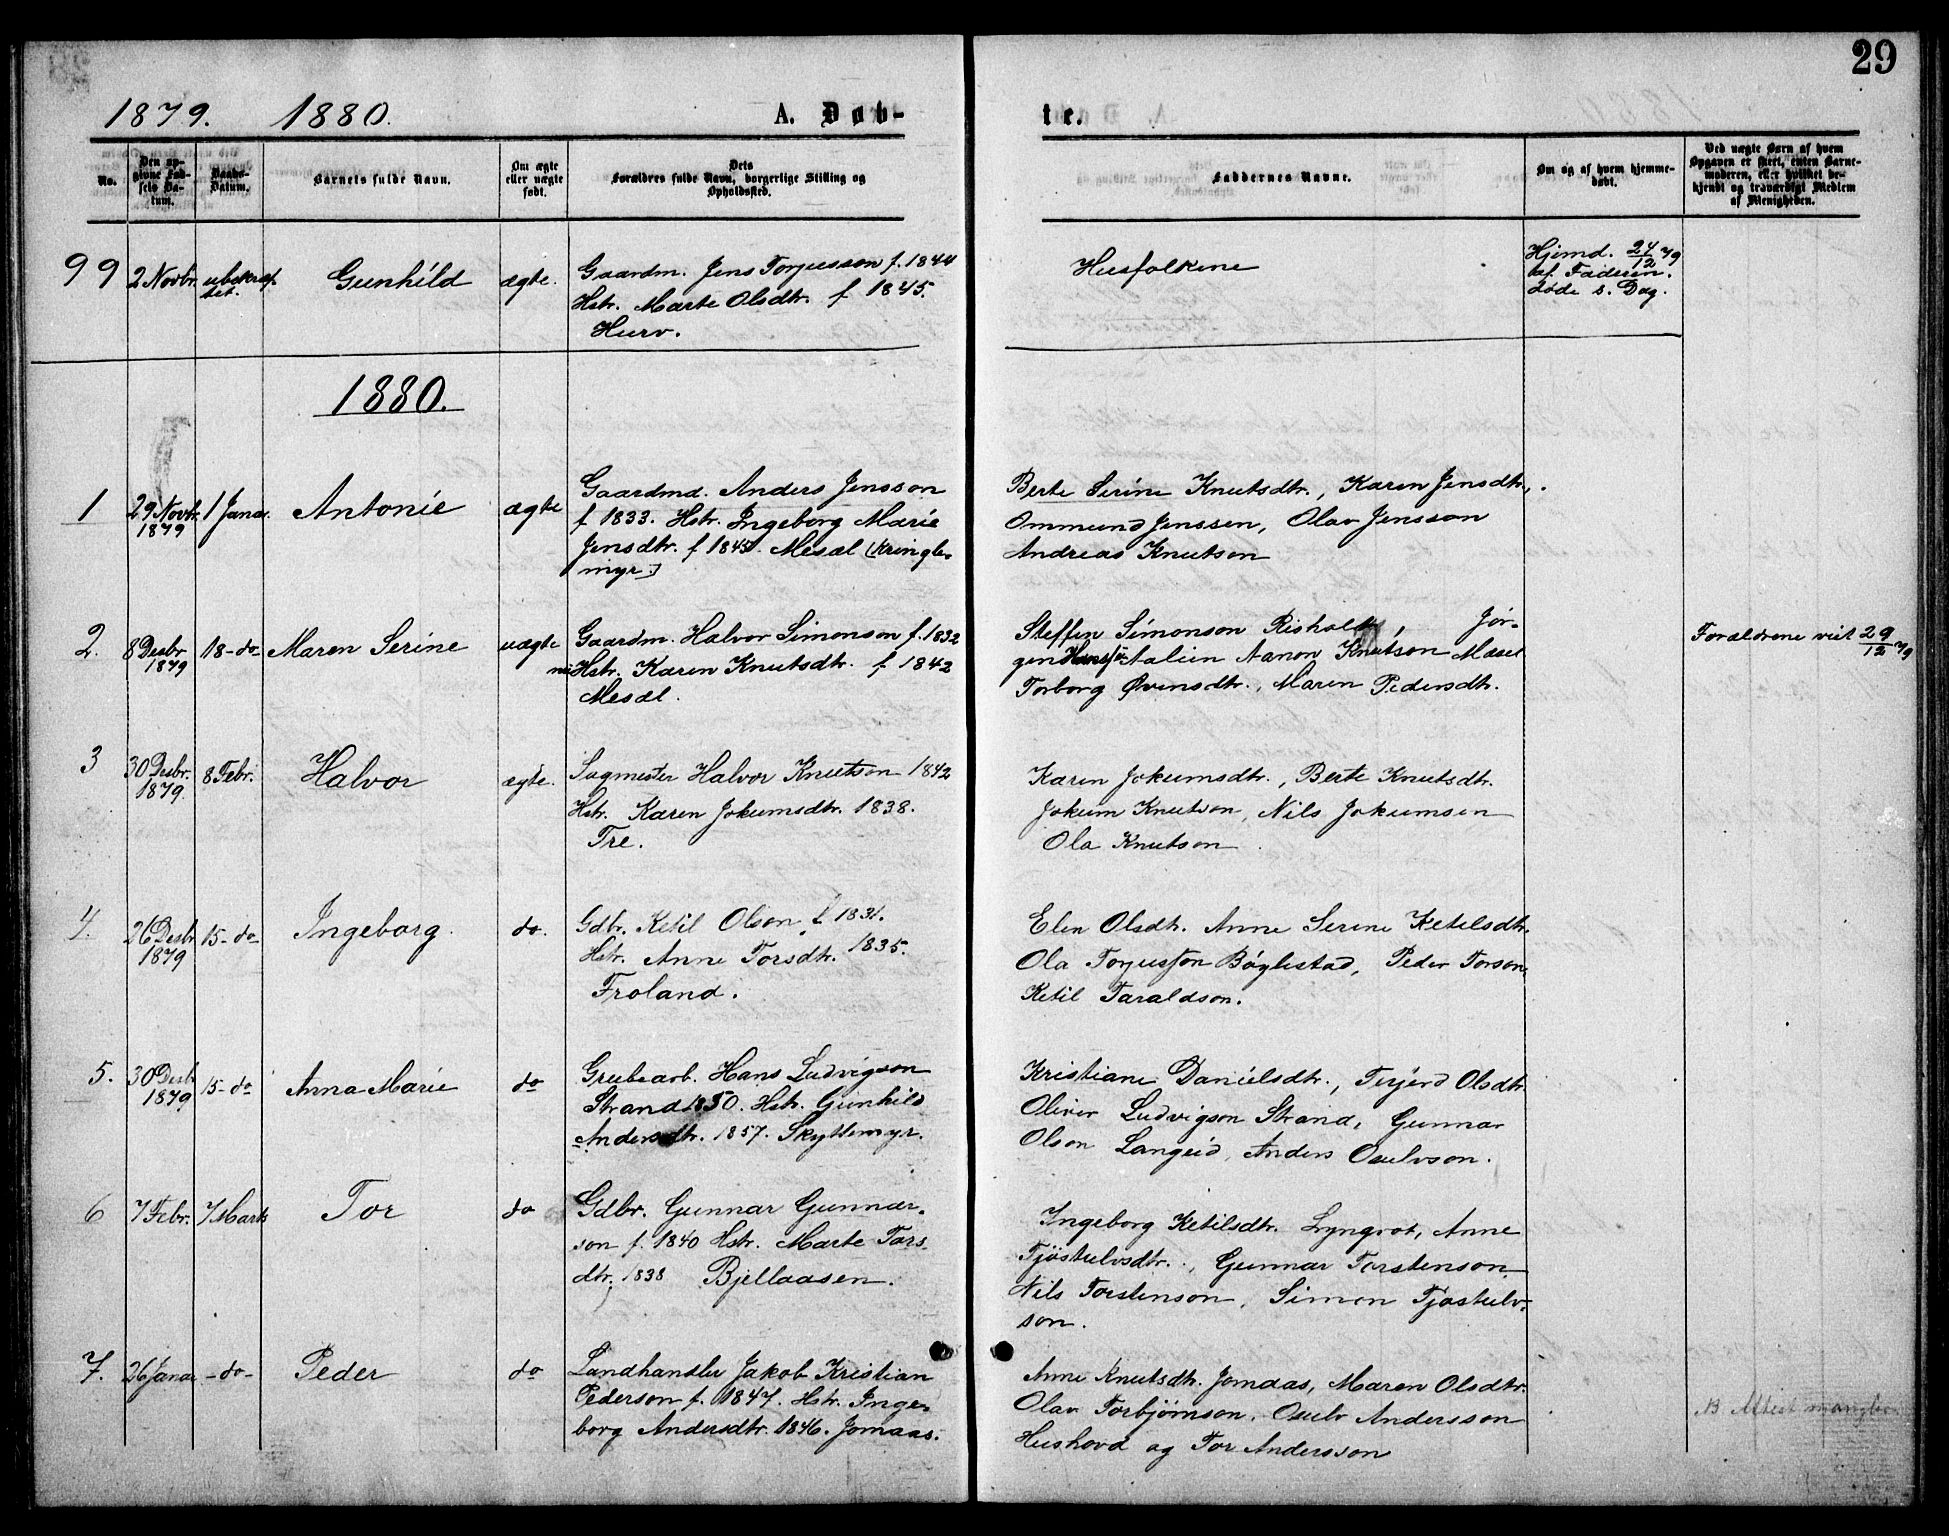 29
1879. 1880. A. Døb-
te.
No.
Den op-
givne Fød-
sels Da-
tum.
Daabs-
Datum.
Barnets fulde Navn.
Om ægte
eller uægte
født.
Dets
Forældres fulde Navn, borgerlige Stilling og
Opholdssted.
Faddernes Navne.
Om og af hvem hjemme-
døbt.
Ved uægte Børn af hvem
Opgaven er skeet, enten Barne-
moderen, eller hvilket be-
kjendt og troværdigt Medlem
af Menigheden.
99
2 Novbr.
ubekræf-
tet.
Gunhild
ægte.
Gaardm. Jens Torjusson f. 1844
Hstr. Marte Olsdtr. f 1845.
Hurv.
Husfolkene
Hjemd. 24/12 79
af Faderen.
døde s. Dag.
1880.
1
29 Novbr.
1879
1 Januar.
Antonie
ægte
Gaardmd. Anders Jensson
f 1833. Hstr. Ingeborg Marie
Jensdtr. f 1845. Mesel (Kringle-
myr.)
Berte Serine Knutsdtr., Karen Jensdtr.,
Ommund Jenssen, Olav Jensson
Andreas Knutson
2.
8 Desbr
1879
18 - do
Maren Serine
uægte
Gaardm. Halvor Simonson f. 1832
Hstr. Karen Knutsdtr. f 1842
Mesel.
Steffen Simonson Risholdt, Jør-
gen Aalien Aanon Knutson Mesel
Torborg Øvensdtr., Maren Pedersdtr.
Forældrene viet 29/12 79
3
30 Desbr.
1879
8 Febr.
Halvor
ægte.
Sagmester Halvor Knutson 1842
Hstr. Karen Jokumsdtr. 1838.
Tre.
Karen Jokumsdtr., Berte Knutsdtr.
Jokum Knutson, Nils Jokumsen
Ola Knutson
4.
26 Desbr
1879
15 - do
Ingeborg.
do.
Gdbr. Ketil Olson f 1831.
Hstr. Anne Torsdtr. 1835.
Froland.
Elen Olsdtr. Anne Serine Ketilsdtr.
Ola Torjusson Bøylestad, Peder Torson,
Ketil Taraldson.
5.
30 Desbr
1879
15 - do
Anna Marie
do
Grubearb. Hans Ludvigson
Strand 1850. Hstr. Gunhild
Andersdtr. 1857. Skyttemyr.
Kristiane Danielsdtr., Terjerd Olsdtr
Oliver Ludvigson Strand, Gunnar
Olson Langeid, Anders Osulvson.
6
7 Febr.
7 Marts
Tor
do
Gdbr. Gunnar Gunnar-
son f. 1840 Hstr. Marte Tors-
dtr. 1838 Bjellaasen.
Ingeborg Ketilsdtr. Lyngrot, Anne
Tjøstulvsdtr., Gunnar Torstenson
Nils Torstenson, Simon Tjøstulv-
son.
7.
26 Januar
- do -
Peder
do
Landhandler Jakob Kristian
Pederson f. 1847. Hstr. Inge-
borg Andersdtr. 1846. Jomaas.
Anne Knutsdtr. Jomaas, Maren Olsdtr.
Olav Torbjørnson, Osulv Andersson
Hushovd og Tor Andersson
NB Attest mangler